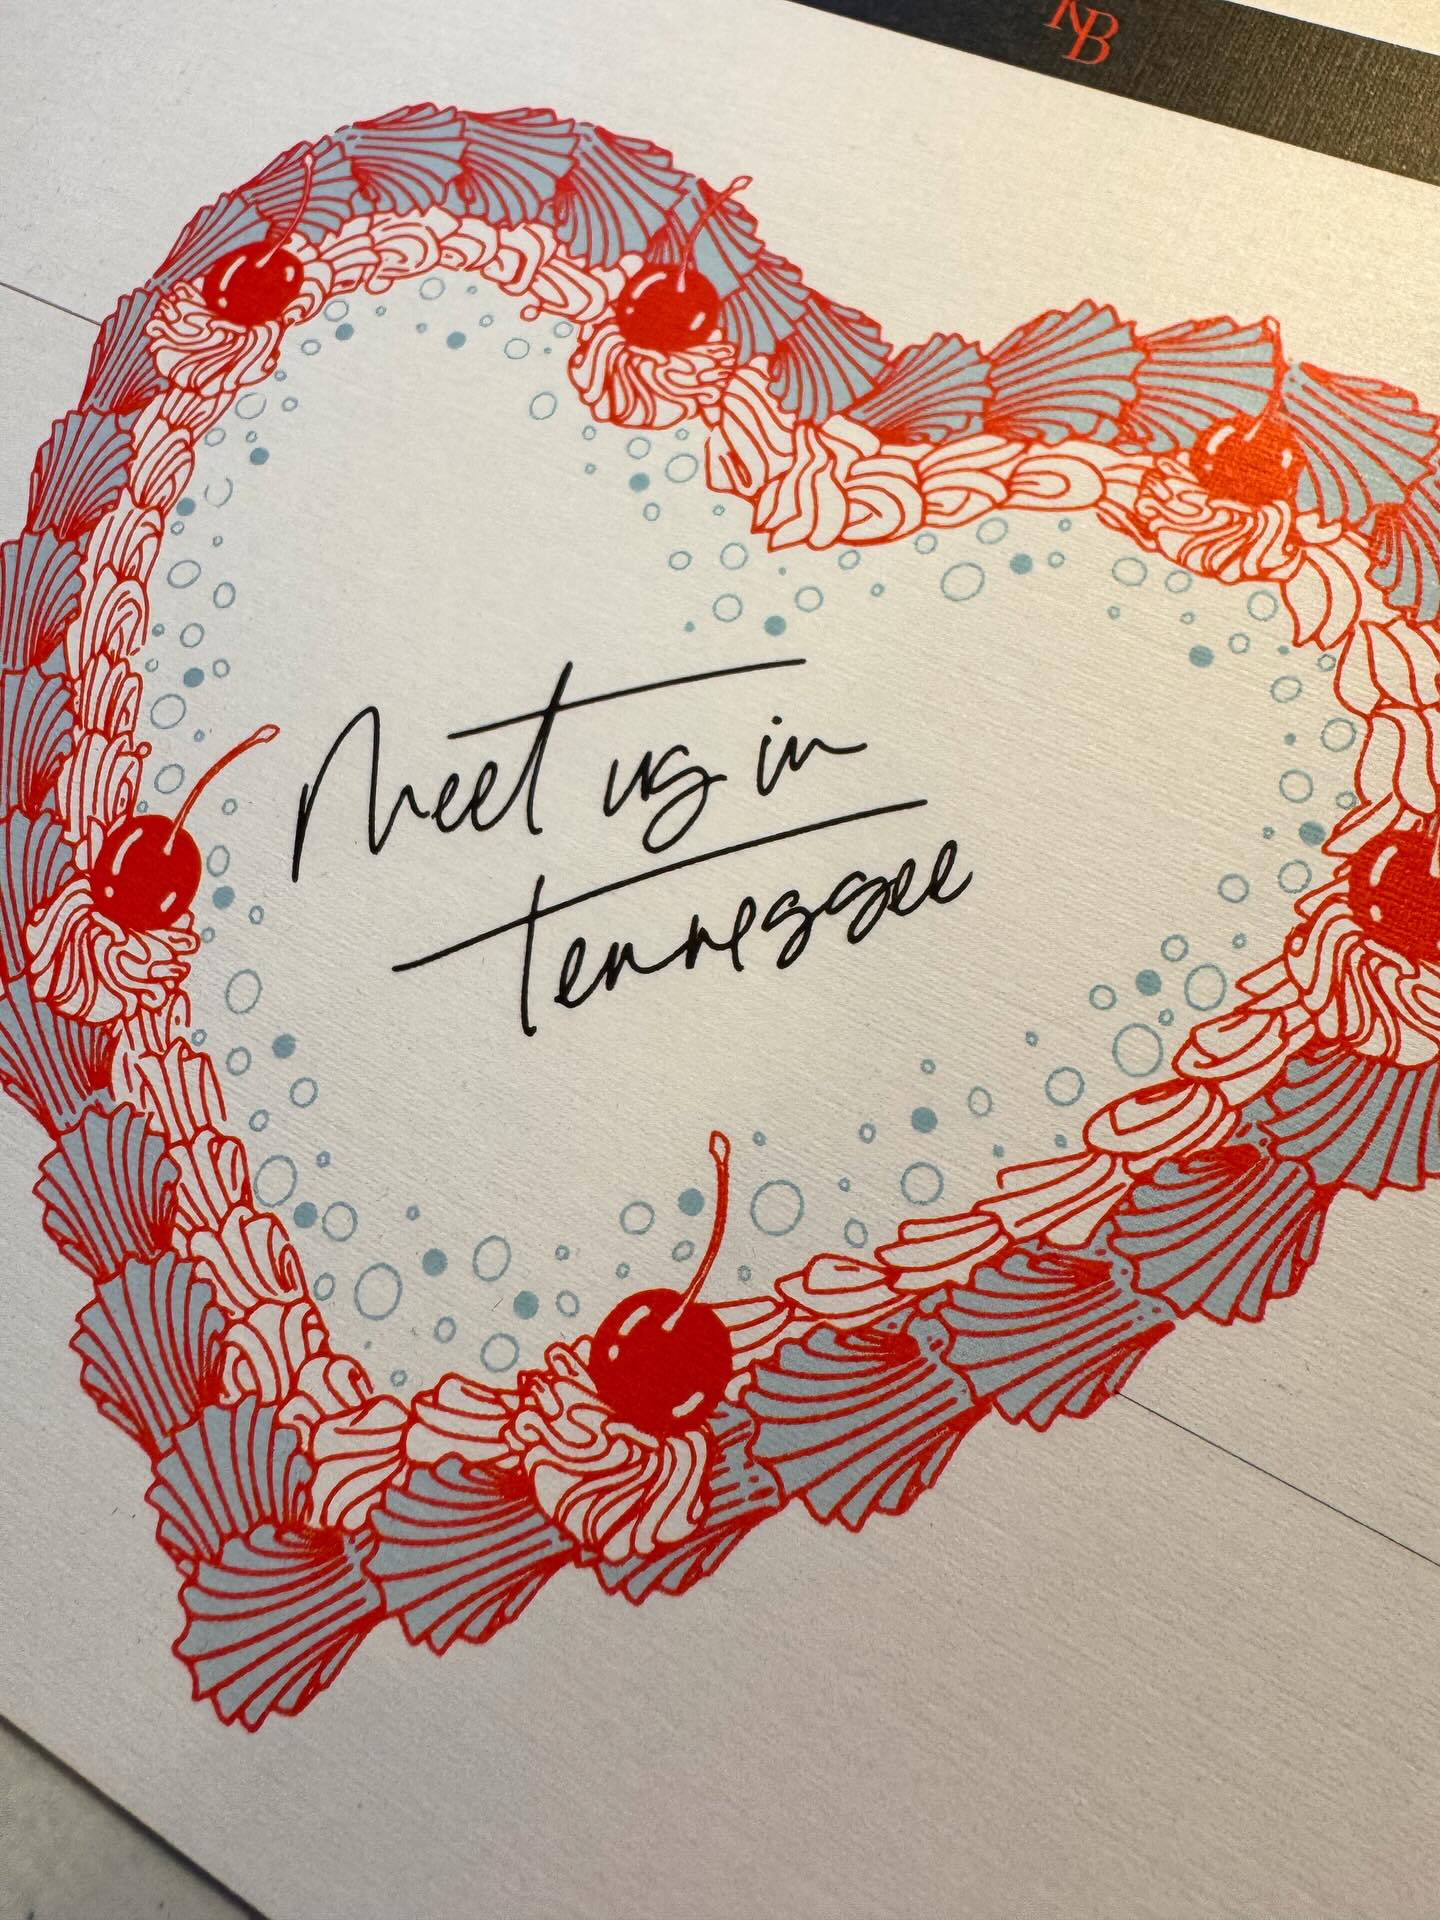 NB
Meet us in
Tennessee